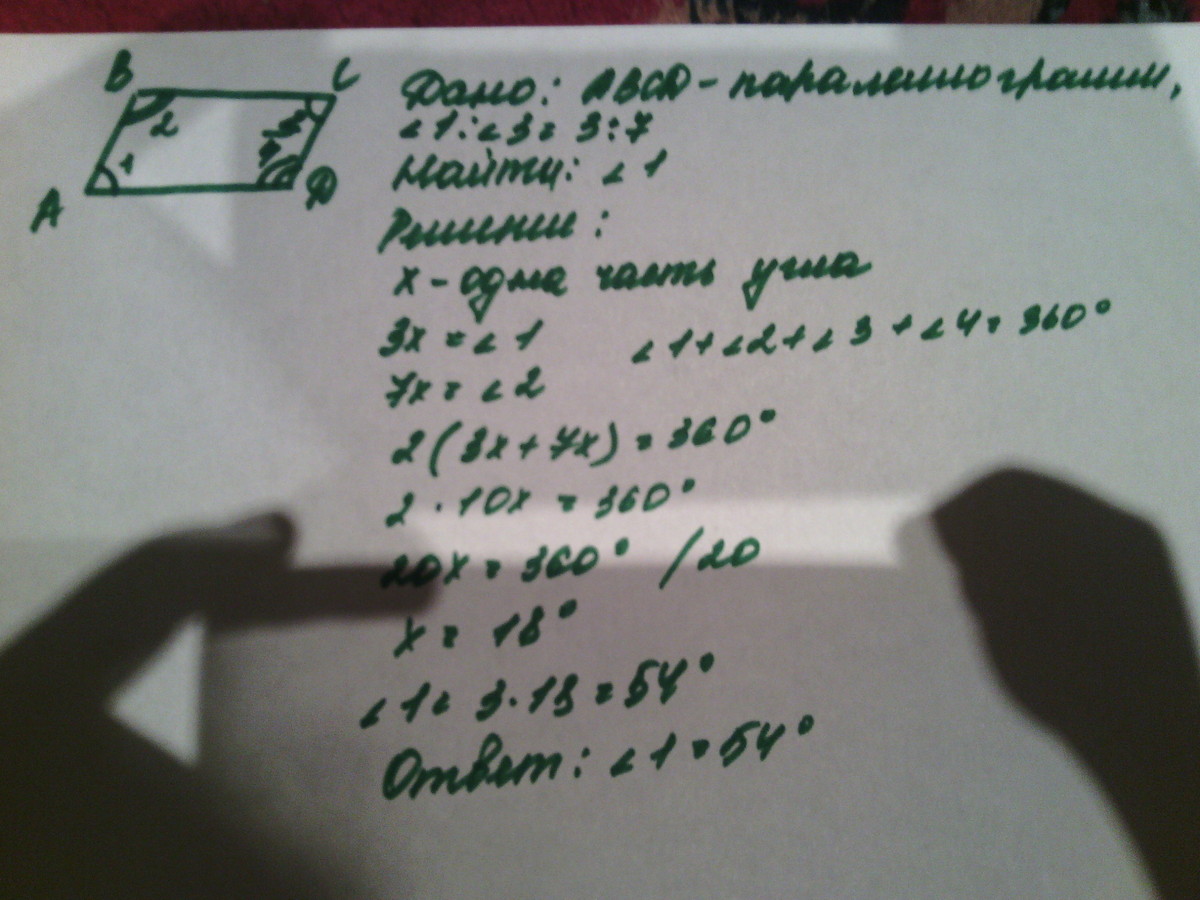 B C
2 3
1 4
A D
Дано: ABCD - параллелограмм,
∠1:∠3 = 3:7
Найти: ∠1
Решение:
x - одна часть угла
3x = ∠1 ∠1+∠2+∠3+∠4=360°
7x = ∠2
2(3x+7x) = 360°
2·10x = 360°
20x = 360° /20
x = 18°
∠1= 3·18=54°
Ответ: ∠1=54°